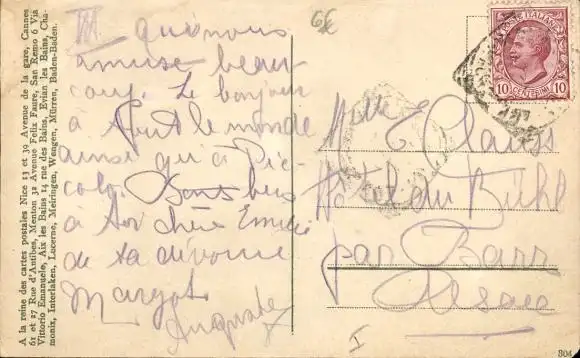 A la reine des cartes postales Nice 53 et 39 Avenue de la gare, Cannes
61 et 27 Rue d'Antibes, Menton 32 Avenue Felix Faure, San Remo 6 Via
Vittorio Emanuele, Aix les Bains 14 rue des Bains, Evian les Bains, Cha-
monix, Interlaken, Lucerne, Meiringen, Wengen, Mürren, Baden-Baden.
III qui nous
amuse beau
coup. Le bonjour
à tout le monde
ainsi qu'à Pic-
colo. Bons
à toi chère Emilie
de ta dévouée
Margot
POSTE ITALIANE
10 CENTESIMI 10
Mlle E Claus
Hôtel du Bühl
par Barr
Alsace
I
304